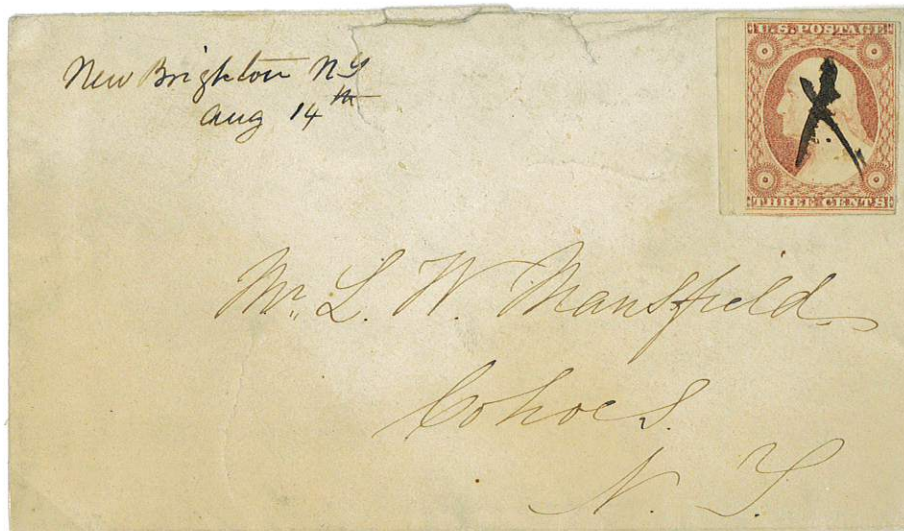 New Brighton NY
Aug 14th
U.S. POSTAGE
THREE CENTS
Mr. L. W. Mansfield
Cohoes.
N. Y.